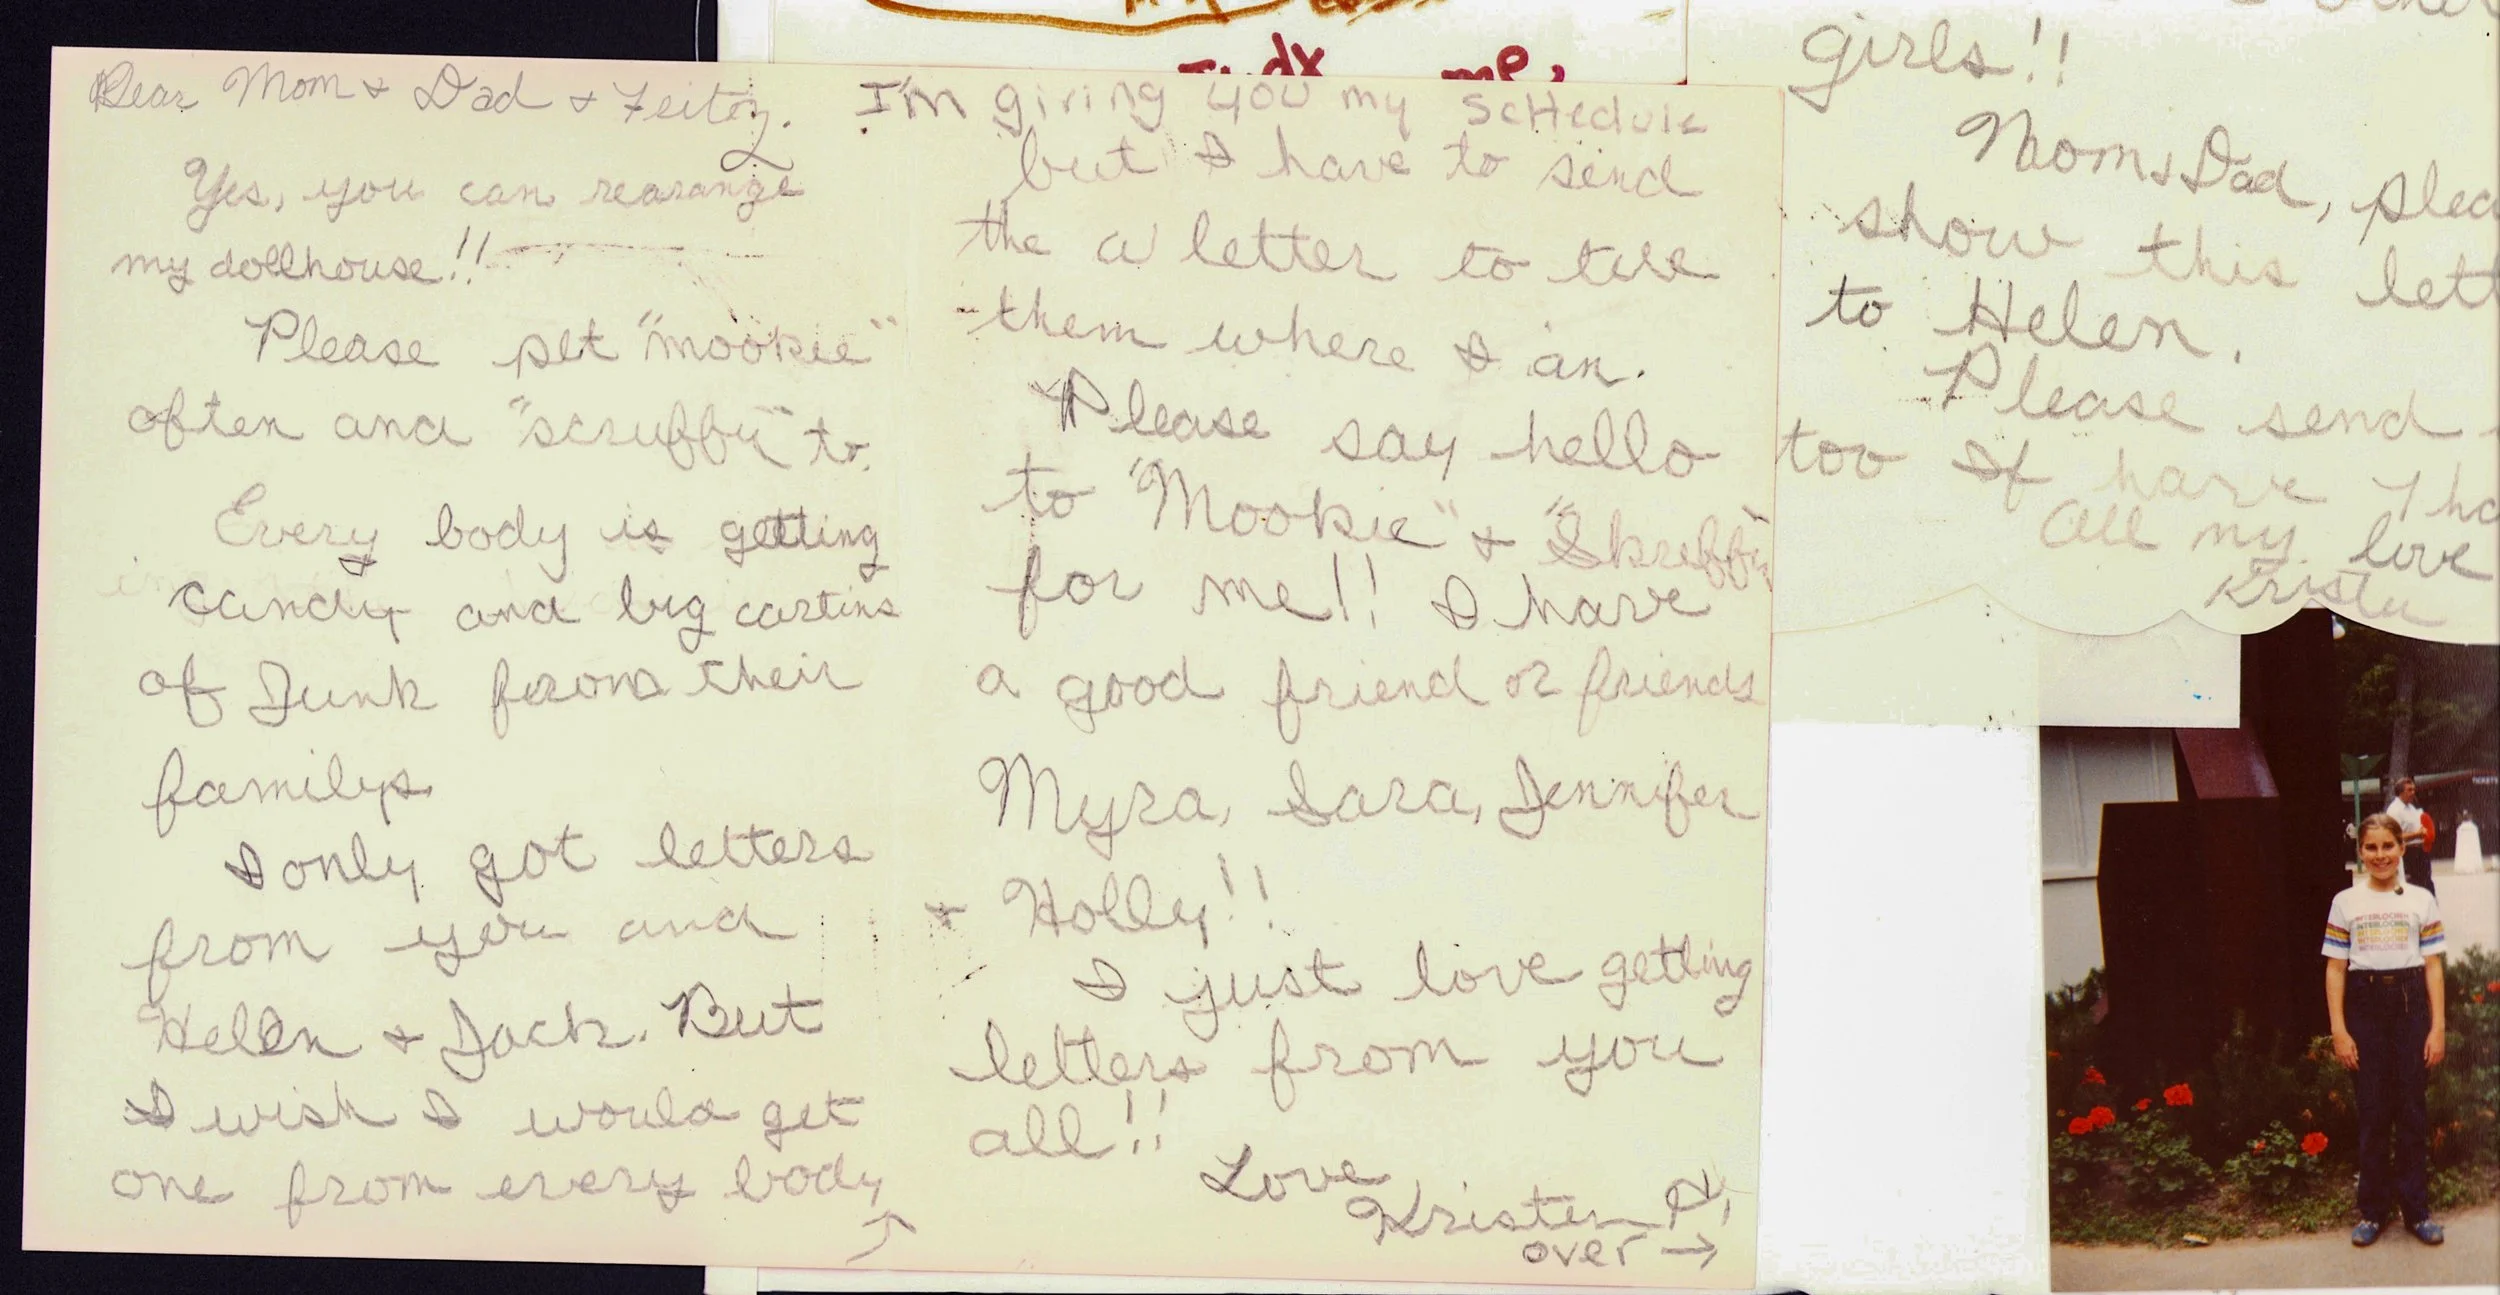 Dear Mom & Dad & Feitoz.
Yes, you can rearange
my dollhouse!!
Please pet "mookie"
often and "scruffy" to.
Every body is getting
candy and big cartins
of Junk from their
familys
I only got letters
from you and
Helen & Jack. But
I wish I would get
one from every body
I'm giving you my schedule
but I have to send
the a letter to tell
them where I am.
Please say hello
to "Mookie" & "Skruffy"
for me!! I have
a good friend or friends
Myra, Sara, Jennifer
& Holly!!
I just love getting
letters from you
all!!
Love
Kristen P.
over →
girls!!
Mom & Dad, plea
show this lett
to Helen.
Please send
too If have I ha
All my love
Kriste
Judy me,
INTERLOCHEN
INTERLOCHEN
INTERLOCHEN
INTERLOCHEN
INTERLOCHEN
TICKETS